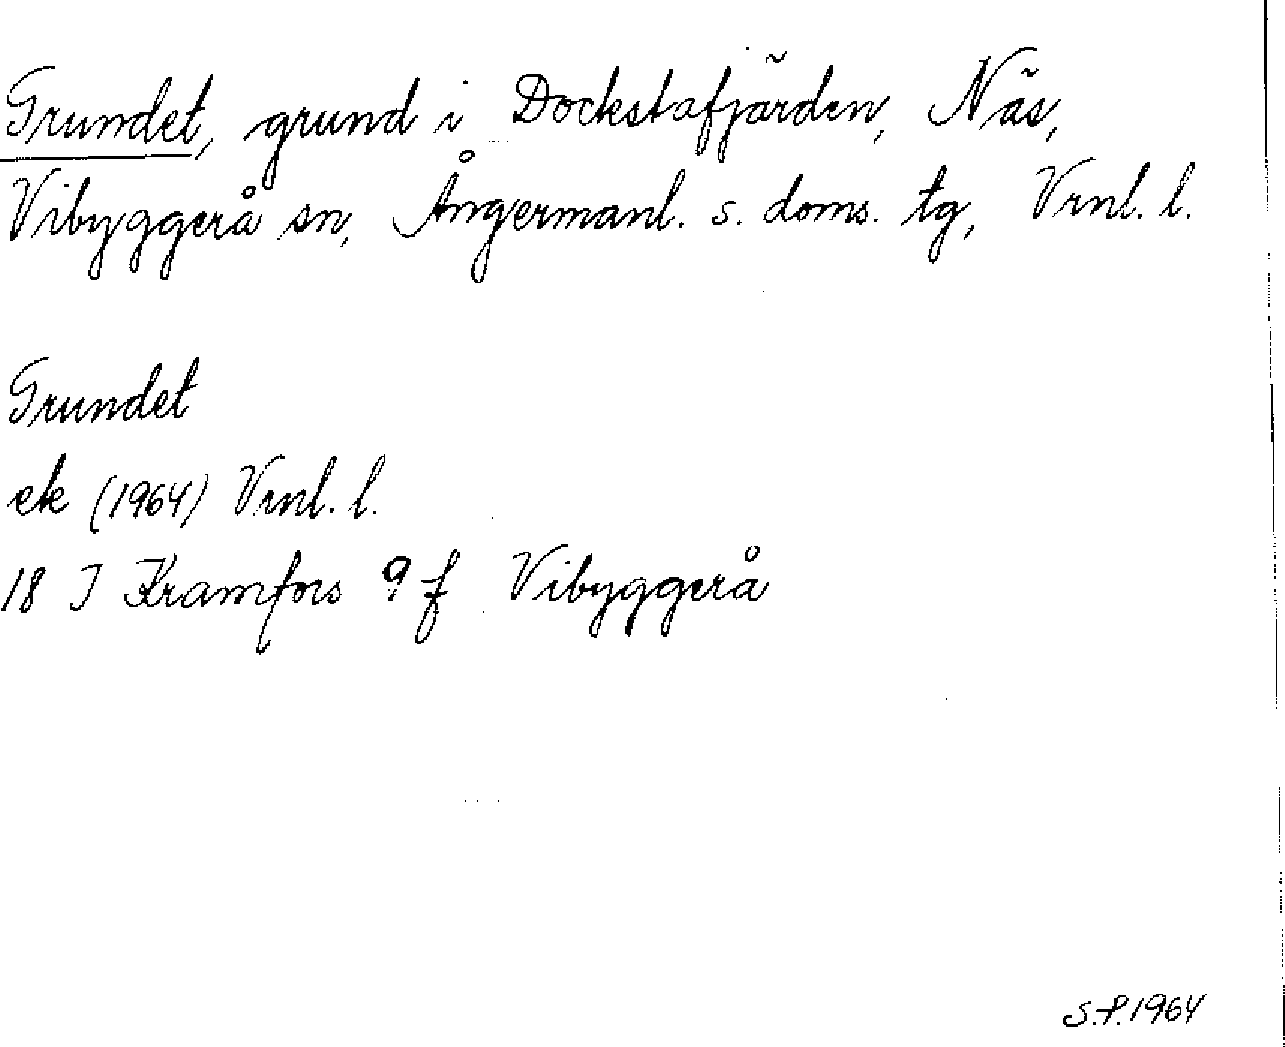 Grundet, grund i Dockstafjärden, Näs,
Vibyggerå sn, Ångermanl. s. doms. tg, Vrnl. l.
Grundet
ek (1964) Vrnl. l.
18 I Kramfors 9 f Vibyggerå
S.P. 1964